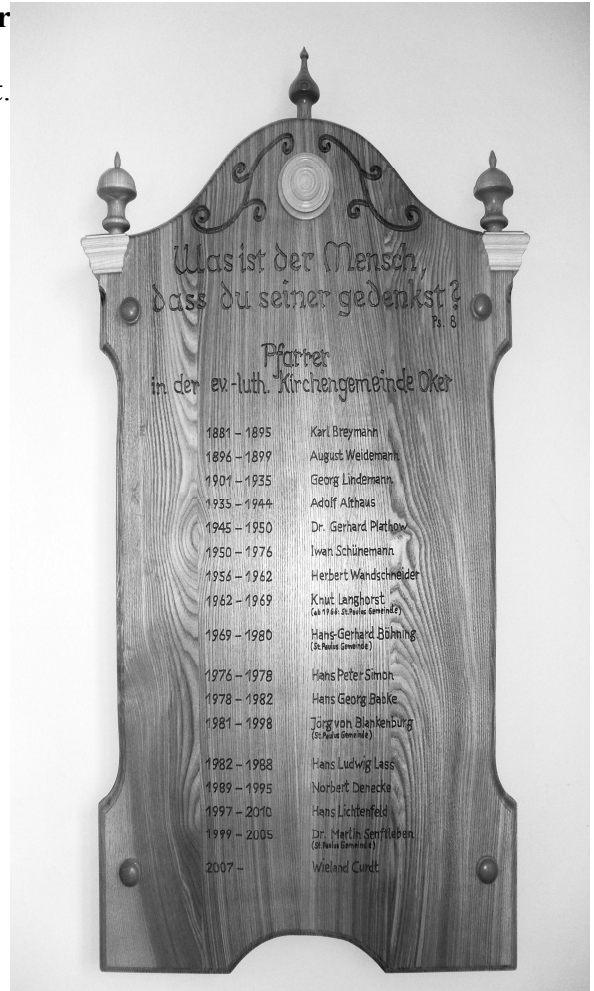 r
t.
Was ist der Mensch,
dass du seiner gedenkst?
Ps. 8
Pfarrer
in der ev.-luth. Kirchengemeinde Oker
1881 – 1895 Karl Breymann
1896 – 1899 August Weidemann
1901 – 1935 Georg Lindemann
1935 – 1944 Adolf Althaus
1945 – 1950 Dr. Gerhard Plathow
1950 – 1976 Iwan Schünemann
1956 – 1962 Herbert Wandschneider
1962 – 1969 Knut Langhorst
(ab 1966: St. Paulus Gemeinde)
1969 – 1980 Hans-Gerhard Böhning
(St. Paulus Gemeinde)
1976 – 1978 Hans Peter Simon
1978 – 1982 Hans Georg Babke
1981 – 1998 Jörg von Blankenburg
(St. Paulus Gemeinde)
1982 – 1988 Hans Ludwig Lass
1989 – 1995 Norbert Denecke
1997 – 2010 Hans Lichtenfeld
1999 – 2005 Dr. Martin Senftleben
(St. Paulus Gemeinde)
2007 – Wieland Curdt